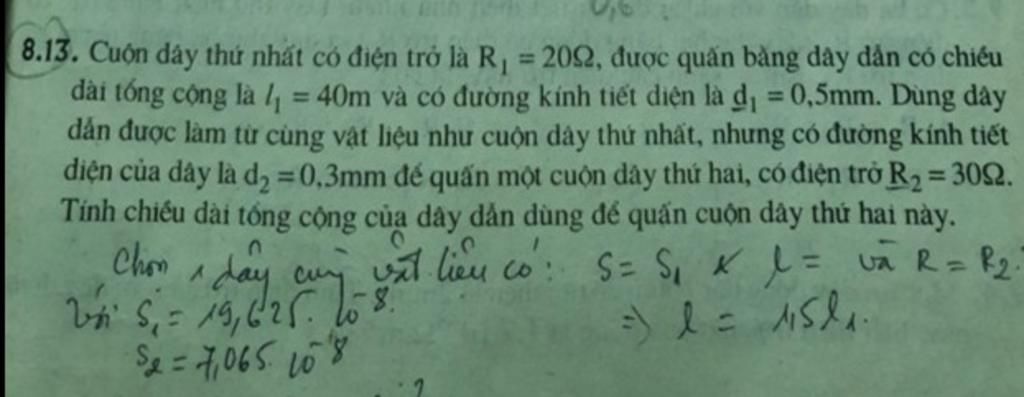 0,6
8.13. Cuộn dây thứ nhất có điện trở là R₁ = 20Ω, được quấn bằng dây dẫn có chiều
dài tổng cộng là l₁ = 40m và có đường kính tiết diện là d₁ = 0,5mm. Dùng dây
dẫn được làm từ cùng vật liệu như cuộn dây thứ nhất, nhưng có đường kính tiết
diện của dây là d₂ = 0,3mm để quấn một cuộn dây thứ hai, có điện trở R₂ = 30Ω.
Tính chiều dài tổng cộng của dây dẫn dùng để quấn cuộn dây thứ hai này.
Chọn 1 dây cùng vật liệu có: S = S₁ l = và R = R₂.
Với S₁ = 19,625. 10⁻⁸. => l = 1,5l₁.
S₂ = 7,065. 10⁻⁸